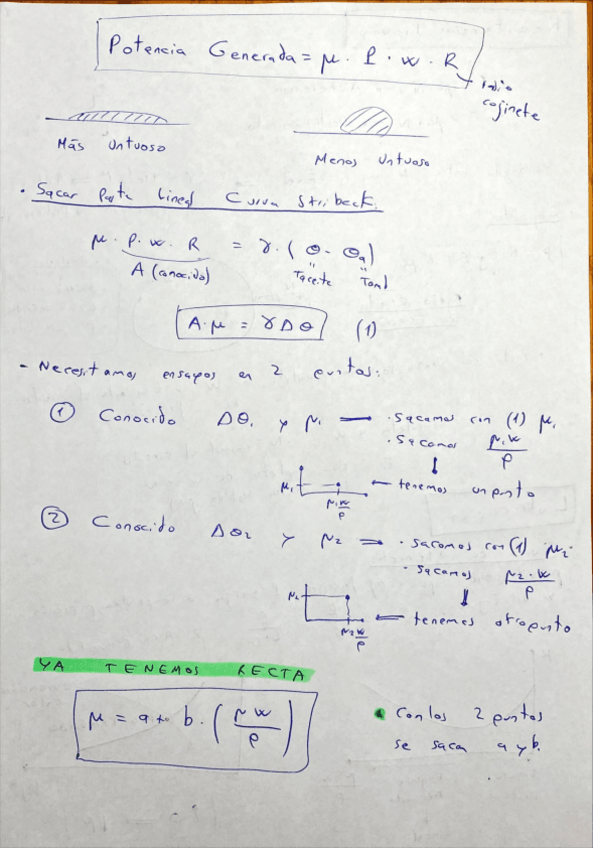 Potencia Generada = μ · P · w · R
radio
cojinete
Más Untuoso
Menos Untuoso
· Sacar Parte Lineal Curva Stribeck.
μ · P · w · R = γ · (θ - θa)
A (conocido)
Taceite
Tamb
A·μ = γ Δθ (1)
- Necesitamos ensayos en 2 puntos:
① Conocido Δθ₁ y μ₁ → · sacamos con (1) μ₁
· Sacamos μ₁w/P
μ₁
μ₁w/P
← tenemos un punto
② Conocido Δθ₂ y μ₂ → · sacamos con (1) μ₂.
· sacamos μ₂·w/P
μ₂
μ₂w/P
← tenemos otro punto
YA TENEMOS RECTA
μ = a + b · (μw/P)
• Con los 2 puntos
se saca a y b.